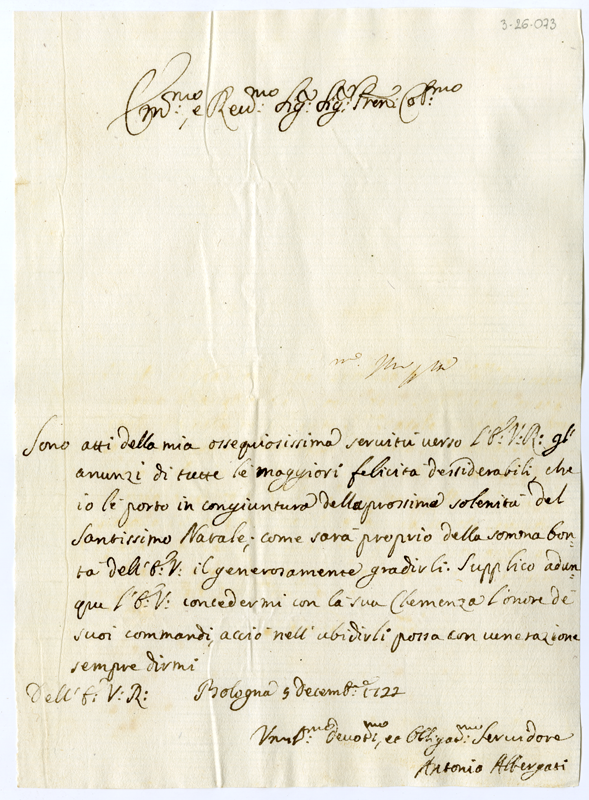 3-26-073
Em.mo, e Reu.mo Sig.r Sig.r Prene Col.mo
Sono atti della mia ossequiosissima seruitù uerso l'E: V: R: gl'
anunzi di tutte le maggiori felicità dessiderabili, che
io le porto in congiuntura della prossima solenità del
Santissimo Natale; come sarà proprio della somma bon=
tà dell'E: V: il generosamente gradirli. Supplico adun=
que l'E: V: concedermi con la sua Clemenza l'onore de
suoi commandi, acciò nell'ubidirli possa con uenerazione
sempre dirmi
Dell'E: V: R: Bologna 5 decemb.e 1722
Vmil.mo deuot.mo, et Obligat.mo Seruidore
Antonio Albergati